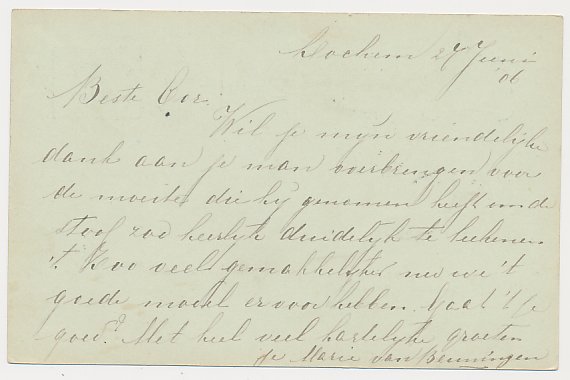 Lochem 27 Juni
'06
Beste Cor.
Wil je mijn vriendelijke
dank aan je man overbrengen voor
de moeite die hij genomen heeft om de
stoof zoo heerlijk duidelijk te teekenen
't Zoo veel gemakkelijker nu we 't
goede model er voor hebben. Gaat 't je
goed? Met heel veel hartelijke groeten
je Marie van Beuningen